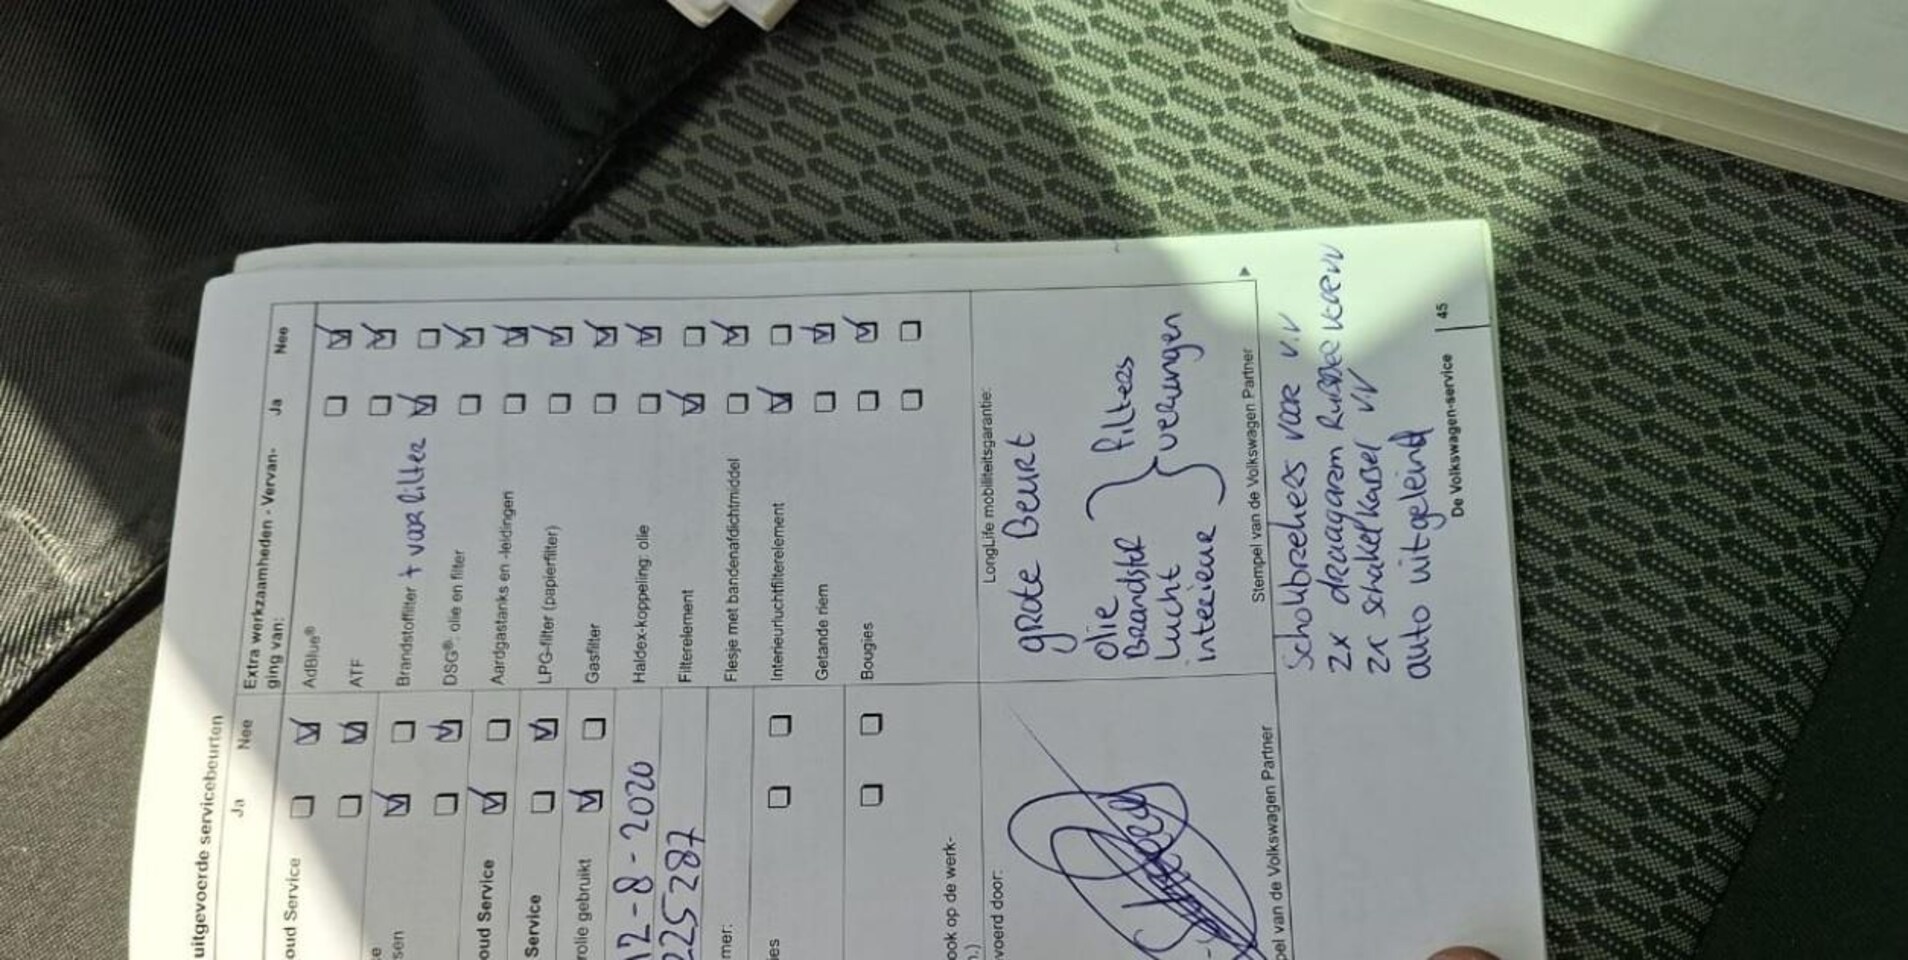 uitgevoerde servicebeurten
Ja Nee
oud Service
sen
oud Service
Service
rolie gebruikt
12-8-2020
225287
mer:
ies
ook op de werk-
voerd door:
pel van de Volkswagen Partner
Extra werkzaamheden - Vervan-
ging van:
Ja Nee
AdBlue®
ATF
Brandstoffilter + voorfilter
DSG®: olie en filter
Aardgastanks en -leidingen
LPG-filter (papierfilter)
Gasfilter
Haldex-koppeling: olie
Filterelement
Flesje met bandenafdichtmiddel
Interieurluchtfilterelement
Getande riem
Bougies
LongLife mobiliteitsgarantie:
grote Beurt
olie
Brandstof } filters
Lucht } vervangen
interieur
Stempel van de Volkswagen Partner
Schokbrekers voor V.V
2x draagarm Rubber
2x schakel VV
auto uitgeleind
De Volkswagen-service 45